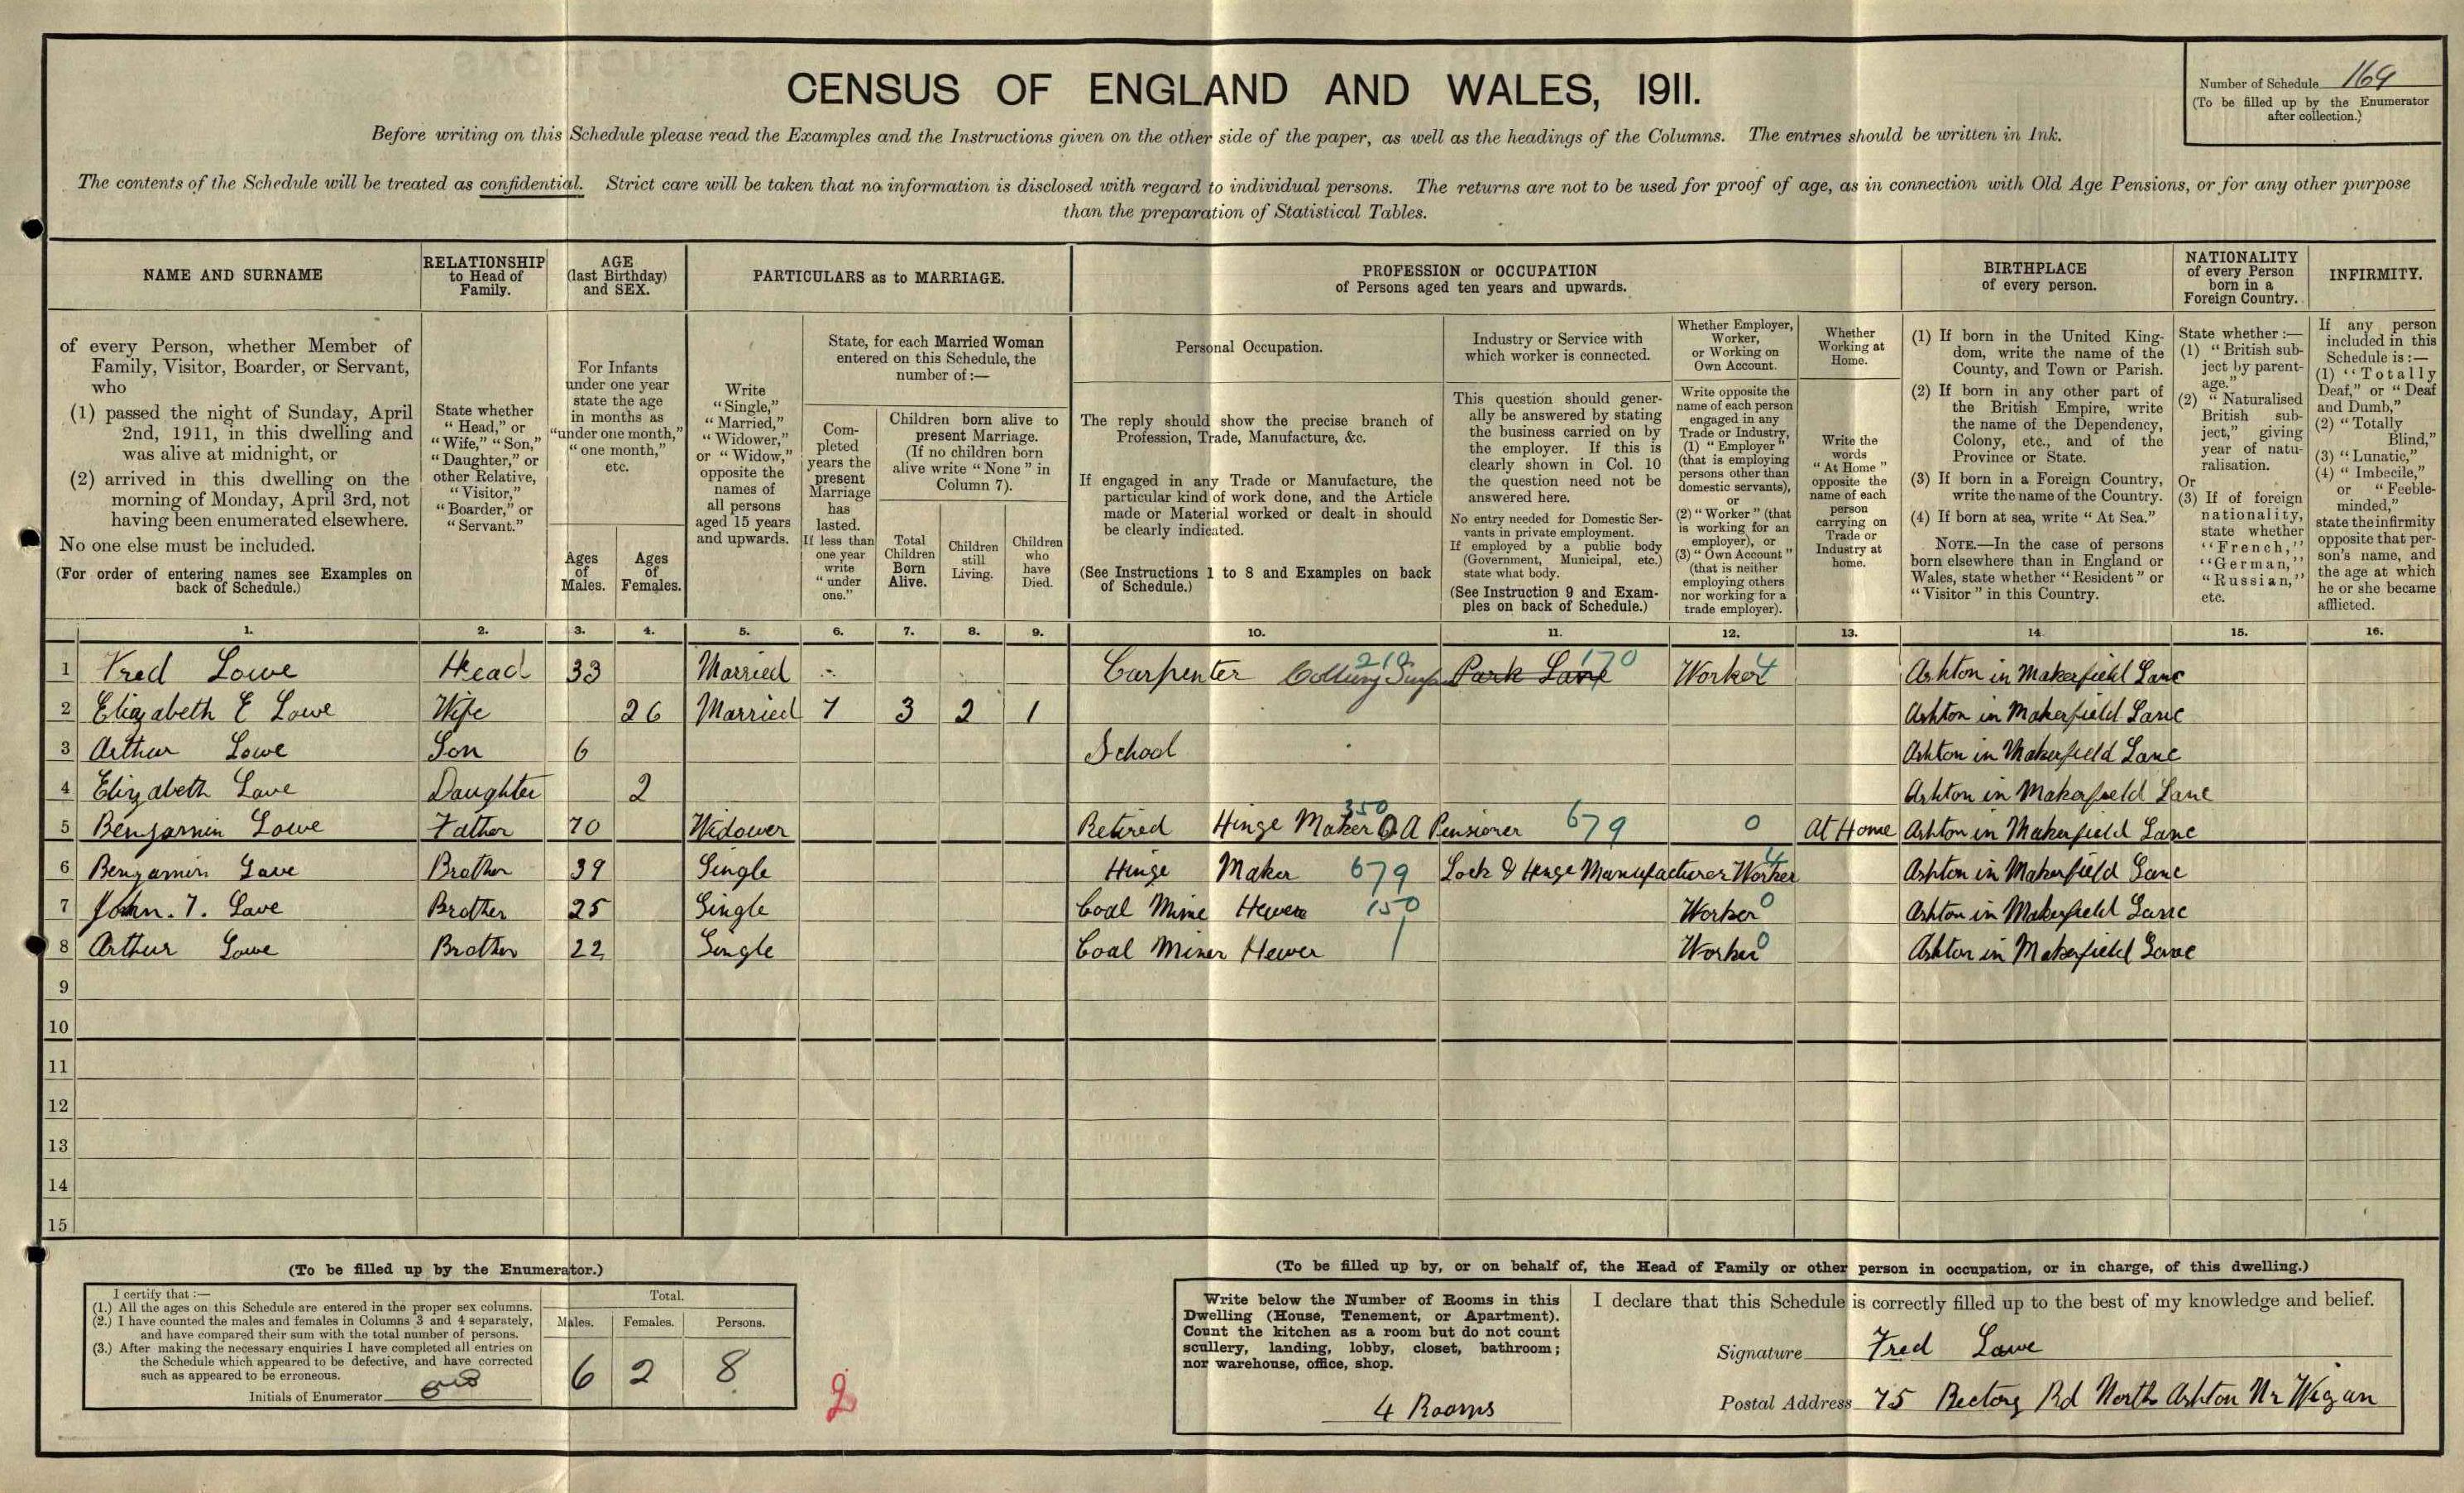 CENSUS OF ENGLAND AND WALES, 1911.
Number of Schedule 169
(To be filled up by the Enumerator
after collection.)
Before writing on this Schedule please read the Examples and the Instructions given on the other side of the paper, as well as the headings of the Columns. The entries should be written in Ink.
The contents of the Schedule will be treated as confidential. Strict care will be taken that no information is disclosed with regard to individual persons. The returns are not to be used for proof of age, as in connection with Old Age Pensions, or for any other purpose
than the preparation of Statistical Tables.
NAME AND SURNAME
of every Person, whether Member of
Family, Visitor, Boarder, or Servant,
who
(1) passed the night of Sunday, April
2nd, 1911, in this dwelling and
was alive at midnight, or
(2) arrived in this dwelling on the
morning of Monday, April 3rd, not
having been enumerated elsewhere.
No one else must be included.
(For order of entering names see Examples on
back of Schedule.)
RELATIONSHIP
to Head of
Family.
State whether
"Head," or
"Wife," "Son,"
"Daughter," or
other Relative,
"Visitor,"
"Boarder," or
"Servant."
AGE
(last Birthday)
and SEX.
For Infants
under one year
state the age
in months as
"under one month,"
"one month,"
etc.
Ages
of
Males.
Ages
of
Females.
PARTICULARS as to MARRIAGE.
Write
"Single,"
"Married,"
"Widower,"
or "Widow,"
opposite the
names of
all persons
aged 15 years
and upwards.
State, for each Married Woman
entered on this Schedule, the
number of:—
Com-
pleted
years the
present
Marriage
has
lasted.
If less than
one year
write
"under
one."
Children born alive to
present Marriage.
(If no children born
alive write "None" in
Column 7).
Total
Children
Born
Alive.
Children
still
Living.
Children
who
have
Died.
PROFESSION or OCCUPATION
of Persons aged ten years and upwards.
Personal Occupation.
The reply should show the precise branch of
Profession, Trade, Manufacture, &c.
If engaged in any Trade or Manufacture, the
particular kind of work done, and the Article
made or Material worked or dealt in should
be clearly indicated.
(See Instructions 1 to 8 and Examples on back
of Schedule.)
Industry or Service with
which worker is connected.
This question should gener-
ally be answered by stating
the business carried on by
the employer. If this is
clearly shown in Col. 10
the question need not be
answered here.
No entry needed for Domestic Ser-
vants in private employment.
If employed by a public body
(Government, Municipal, etc.)
state what body.
(See Instruction 9 and Exam-
ples on back of Schedule.)
Whether Employer,
Worker,
or Working on
Own Account.
Write opposite the
name of each person
engaged in any
Trade or Industry,
(1) "Employer"
(that is employing
persons other than
domestic servants),
or
(2) "Worker" (that
is working for an
employer), or
(3) "Own Account"
(that is neither
employing others
nor working for a
trade employer).
Whether
Working at
Home.
Write the
words
"At Home"
opposite the
name of each
person
carrying on
Trade or
Industry at
home.
BIRTHPLACE
of every person.
(1) If born in the United King-
dom, write the name of the
County, and Town or Parish.
(2) If born in any other part of
the British Empire, write
the name of the Dependency,
Colony, etc., and of the
Province or State.
(3) If born in a Foreign Country,
write the name of the Country.
(4) If born at sea, write "At Sea."
NOTE.—In the case of persons
born elsewhere than in England or
Wales, state whether "Resident" or
"Visitor" in this Country.
NATIONALITY
of every Person
born in a
Foreign Country.
State whether:—
(1) "British sub-
ject by parent-
age."
(2) "Naturalised
British sub-
ject," giving
year of natu-
ralisation.
Or
(3) If of foreign
nationality,
state whether
"French,"
"German,"
"Russian,"
etc.
INFIRMITY.
If any person
included in this
Schedule is:—
(1) "Totally
Deaf," or "Deaf
and Dumb,"
(2) "Totally
Blind,"
(3) "Lunatic,"
(4) "Imbecile,"
or "Feeble-
minded,"
state the infirmity
opposite that per-
son's name, and
the age at which
he or she became
afflicted.
1. 2. 3. 4. 5. 6. 7. 8. 9. 10. 11. 12. 13. 14. 15. 16.
1 Fred Lowe Head 33 Married Carpenter 210 Park Lane 170 Worker 4 Ashton in Makerfield Lanc
2 Elizabeth E Lowe Wife 26 Married 7 3 2 1 Ashton in Makerfield Lanc
3 Arthur Lowe Son 6 School Ashton in Makerfield Lanc
4 Elizabeth Lowe Daughter 2 Ashton in Makerfield Lanc
5 Benjamin Lowe Father 70 Widower Retired Hinge Maker 350 O A Pensioner 679 0 At Home Ashton in Makerfield Lanc
6 Benjamin Lowe Brother 39 Single Hinge Maker 679 Lock & Hinge Manufacturer Worker 4 Ashton in Makerfield Lanc
7 John. T. Lowe Brother 25 Single Coal Mine Hewer 150 Worker 0 Ashton in Makerfield Lanc
8 Arthur Lowe Brother 22 Single Coal Miner Hewer Worker 0 Ashton in Makerfield Lanc
9
10
11
12
13
14
15
(To be filled up by the Enumerator.)
I certify that:—
(1.) All the ages on this Schedule are entered in the proper sex columns.
(2.) I have counted the males and females in Columns 3 and 4 separately,
and have compared their sum with the total number of persons.
(3.) After making the necessary enquiries I have completed all entries on
the Schedule which appeared to be defective, and have corrected
such as appeared to be erroneous.
Initials of Enumerator
Total.
Males. Females. Persons.
6 2 8
2
(To be filled up by, or on behalf of, the Head of Family or other person in occupation, or in charge, of this dwelling.)
Write below the Number of Rooms in this
Dwelling (House, Tenement, or Apartment).
Count the kitchen as a room but do not count
scullery, landing, lobby, closet, bathroom;
nor warehouse, office, shop.
4 Rooms
I declare that this Schedule is correctly filled up to the best of my knowledge and belief.
Signature Fred Lowe
Postal Address 75 Rectory Rd North Ashton Nr Wigan